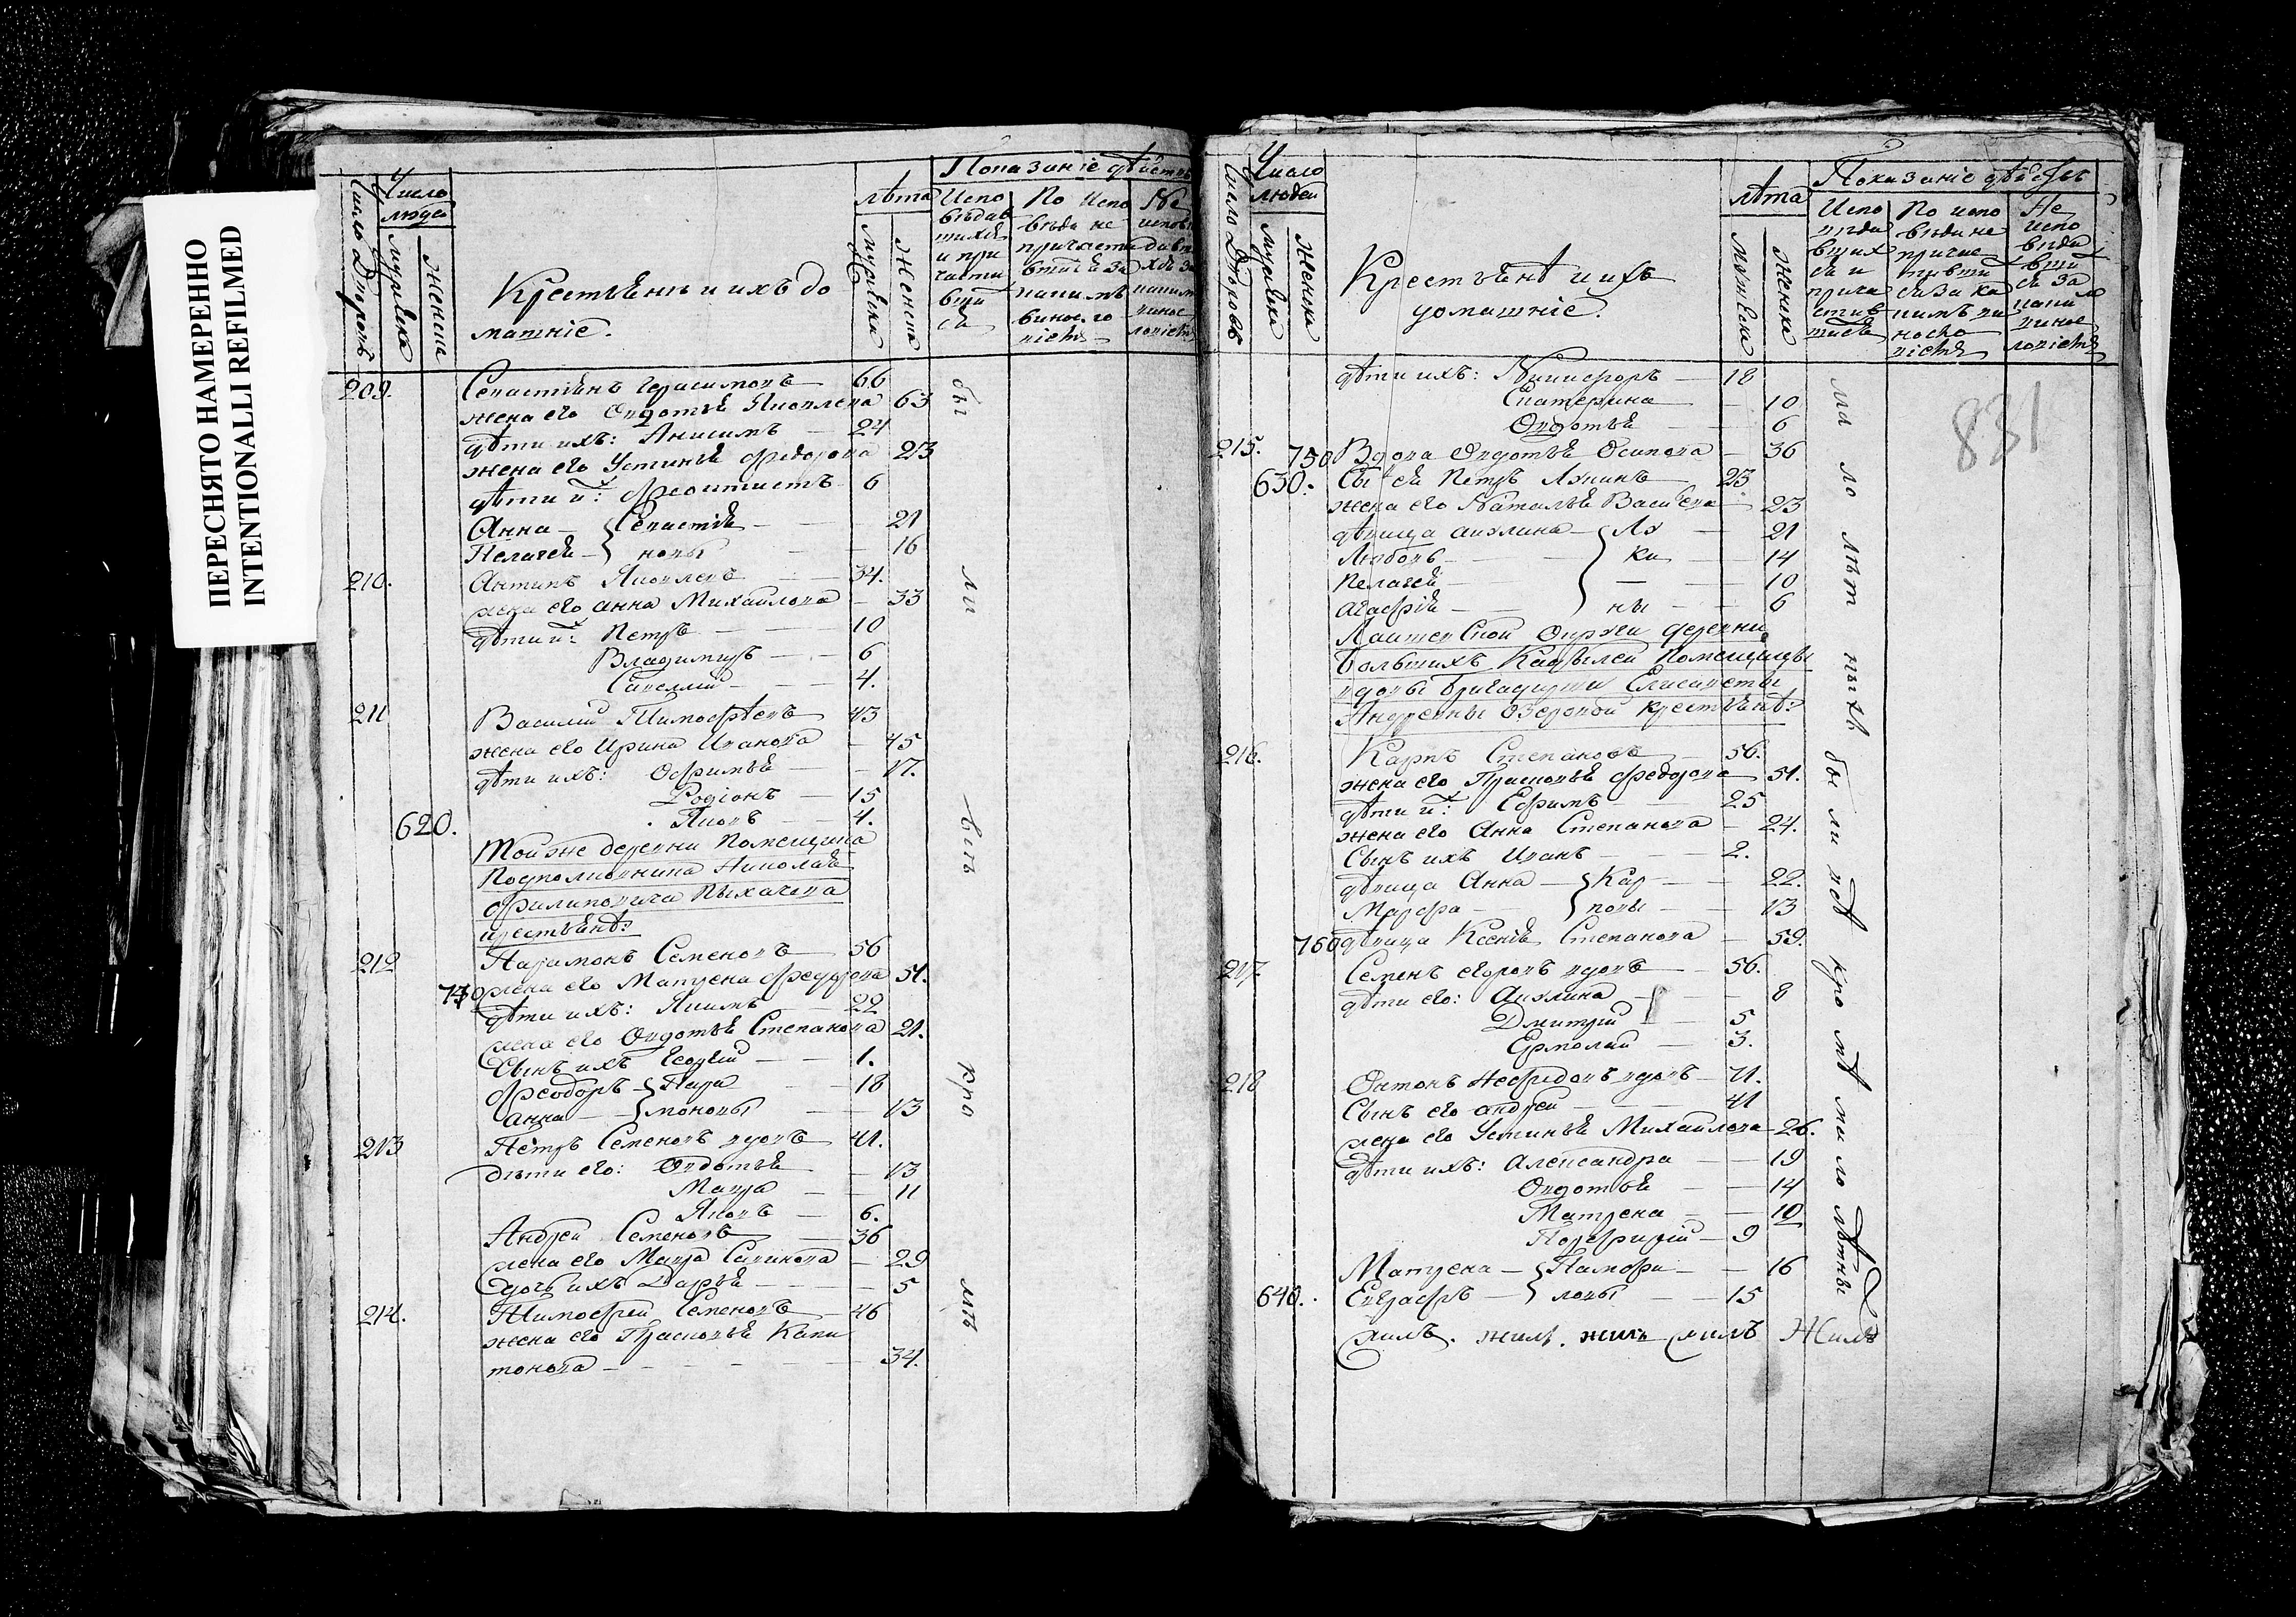 ПЕРЕСНЯТО НАМЕРЕННО
INTENTIONALLI REFILMED
Число Дворовъ
Число людей
мужеска
женска
Крестьянъ и ихъ до
машніе.
лѣта
мужеска
женска
Показаніе дѣйств
Испо
вѣдав
шихся
и при
части
вши
ся
По испо
вѣди не
причасти
вшися за
какимъ
виносло
віемъ
Не
испов
209.
Севастьянъ Герасимовъ — 66
жена его Овдотья Яковлева 63
дѣти ихъ: Анисимъ — 24
жена его Устинья Федорова 23
дѣти ихъ: Феоктистъ 6
Анна — } Севастья — 21
Пелагея — } новы — 16
210.
Антипъ Яковлевъ — 34.
жена его Анна Михайлова — 33
дѣти ихъ: Петръ — 10
Владимиръ — 6
Савелий — 4.
211
Василий Тимофѣевъ 43
жена его Ирина Иванова — 45
дѣти ихъ: Офимья — 17.
Родіонъ — 15
620.
Яковъ — 4.
Той же деревни Помещика
Подполковника Николая
Филиповича Пыхачева
крестьянѣ:
212
Парамонъ Семеновъ 56
740 жена его Матрена Федорова 51.
дѣти ихъ: Якимъ — 22
жена его Овдотья Степанова 21.
Сынъ ихъ Георгий — 1.
Феодоръ } Пара — 18
Анна — } моновы — 13
213
Петръ Семеновъ вдовъ 41.
дѣти его: Овдотья — 13
Мавра — 11
Яковъ — 6.
Андрей Семеновъ — 36
жена его Мавра Савинова — 29
Дочь ихъ Дарья — 5
214.
Тимофей Семеновъ — 46
жена его Прасковья Капи
тонова — 34.
бы
ли
всѣ
кро
мѣ
Число Дворовъ
Число
людей
мужеска
женска
Крестьянѣ и ихъ
домашніе.
лѣта
мужеска
женска
Показаніе дѣйствъ
По испо
вѣди не
Не
испо
831
дѣти ихъ: Никифоръ — 18
Екатерина — 10
Овдотья — 6
215. 750
Вдова Овдотья Осипова — 36
630.
Сынъ ея Петръ Лукинъ 23.
жена его Наталья Васильева — 23
дѣвица Акулина — } Лу — 21
Любовь — } ки — 14
Пелагея — } — 10
Агафія — } ны — 6
Лаишевской Округи деревни
Большихъ Кабылей Помещицы
вдовы Бригадирши Елисаветы
Андревны Озеровой крестьянѣ:
216.
Карпъ Степановъ — 56.
жена его Прасковья Федорова — 51.
дѣти ихъ: Ефимъ — 25
жена его Анна Степанова — 24.
Сынъ ихъ Иванъ — 2.
дѣвица Анна — } Кар — 22.
Марфа — } повы — 13
760 дѣвица Ксенія Степанова — 59.
217
Семенъ Егоровъ вдовъ — 56.
дѣти его: Акулина — 8
Дмитрий — 5
Ермолай — 3.
218
Онтонъ Нефедовъ вдовъ — 71.
Сынъ его Андрей — 41
жена его Устинья Михайлова — 26.
дѣти ихъ: Александра — 19
Овдотья — 14
Матрена — 10
Порфирій — 9
Матрена — } Памфи — 16
640.
Евграфъ — } ловы — 15
ма ло лѣт ныхъ бы ли всѣ кро мѣ ма ло лѣтныхъ